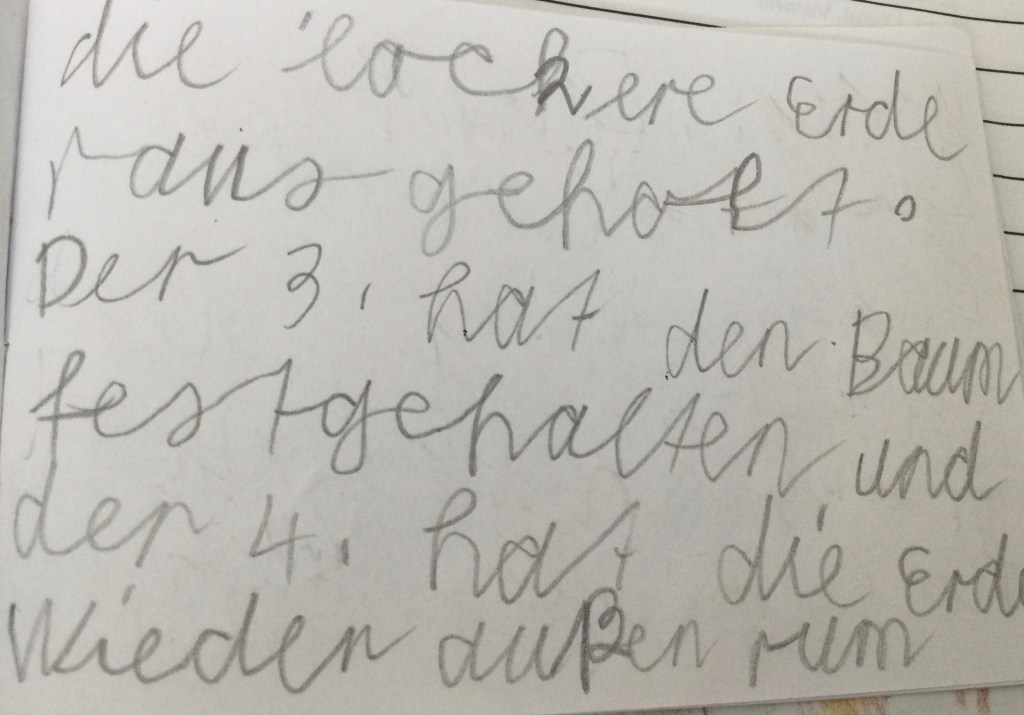 die lockere Erde
raus geholt.
Der 3. hat den Baum
festgehalten und
der 4. hat die Erde
Wieder außen rum